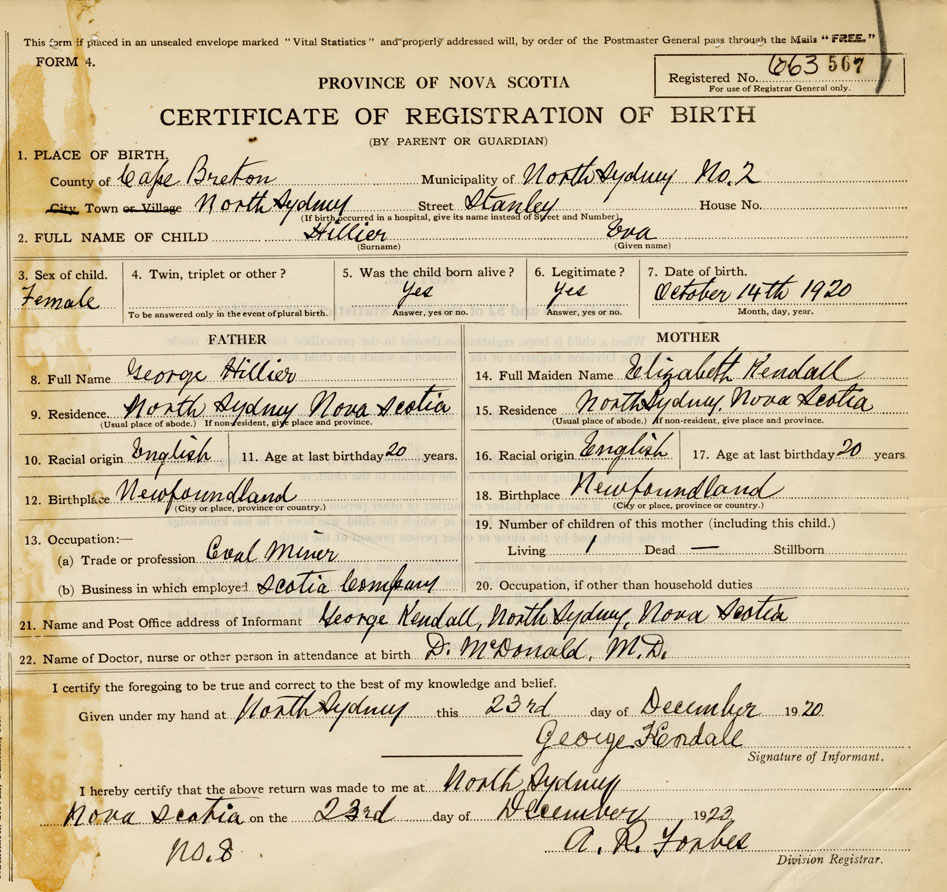 This form if placed in an unsealed envelope marked "Vital Statistics" and properly addressed will, by order of the Postmaster General pass through the Mails "FREE."
FORM 4.
Registered No. 663 567
For use of Registrar General only.
PROVINCE OF NOVA SCOTIA
CERTIFICATE OF REGISTRATION OF BIRTH
(BY PARENT OR GUARDIAN)
1. PLACE OF BIRTH,
County of Cape Breton Municipality of North Sydney No. 2
City, Town or Village North Sydney Street Stanley House No.
(If birth occurred in a hospital, give its name instead of Street and Number)
2. FULL NAME OF CHILD Hillier Eva
(Surname) (Given name)
3. Sex of child. 4. Twin, triplet or other? 5. Was the child born alive? 6. Legitimate? 7. Date of birth.
Female Yes Yes October 14th 1920
To be answered only in the event of plural birth. Answer, yes or no. Answer, yes or no. Month, day, year.
FATHER
8. Full Name George Hillier
9. Residence North Sydney Nova Scotia
(Usual place of abode.) If non-resident, give place and province.
10. Racial origin English 11. Age at last birthday 20 years.
12. Birthplace Newfoundland
(City or place, province or country.)
13. Occupation:—
(a) Trade or profession Coal Miner
(b) Business in which employed Scotia Company
MOTHER
14. Full Maiden Name Elizabeth Kendall
15. Residence North Sydney, Nova Scotia
(Usual place of abode.) If non-resident, give place and province.
16. Racial origin English 17. Age at last birthday 20 years
18. Birthplace Newfoundland
(City or place, province or country.)
19. Number of children of this mother (including this child.)
Living 1 Dead — Stillborn
20. Occupation, if other than household duties
21. Name and Post Office address of Informant George Kendall, North Sydney, Nova Scotia
22. Name of Doctor, nurse or other person in attendance at birth D. McDonald, M.D.
I certify the foregoing to be true and correct to the best of my knowledge and belief.
Given under my hand at North Sydney this 23rd day of December 1920.
George Kendall
Signature of Informant.
I hereby certify that the above return was made to me at North Sydney
Nova Scotia on the 23rd day of December 1923
No. 8 A. R. Forbes
Division Registrar.